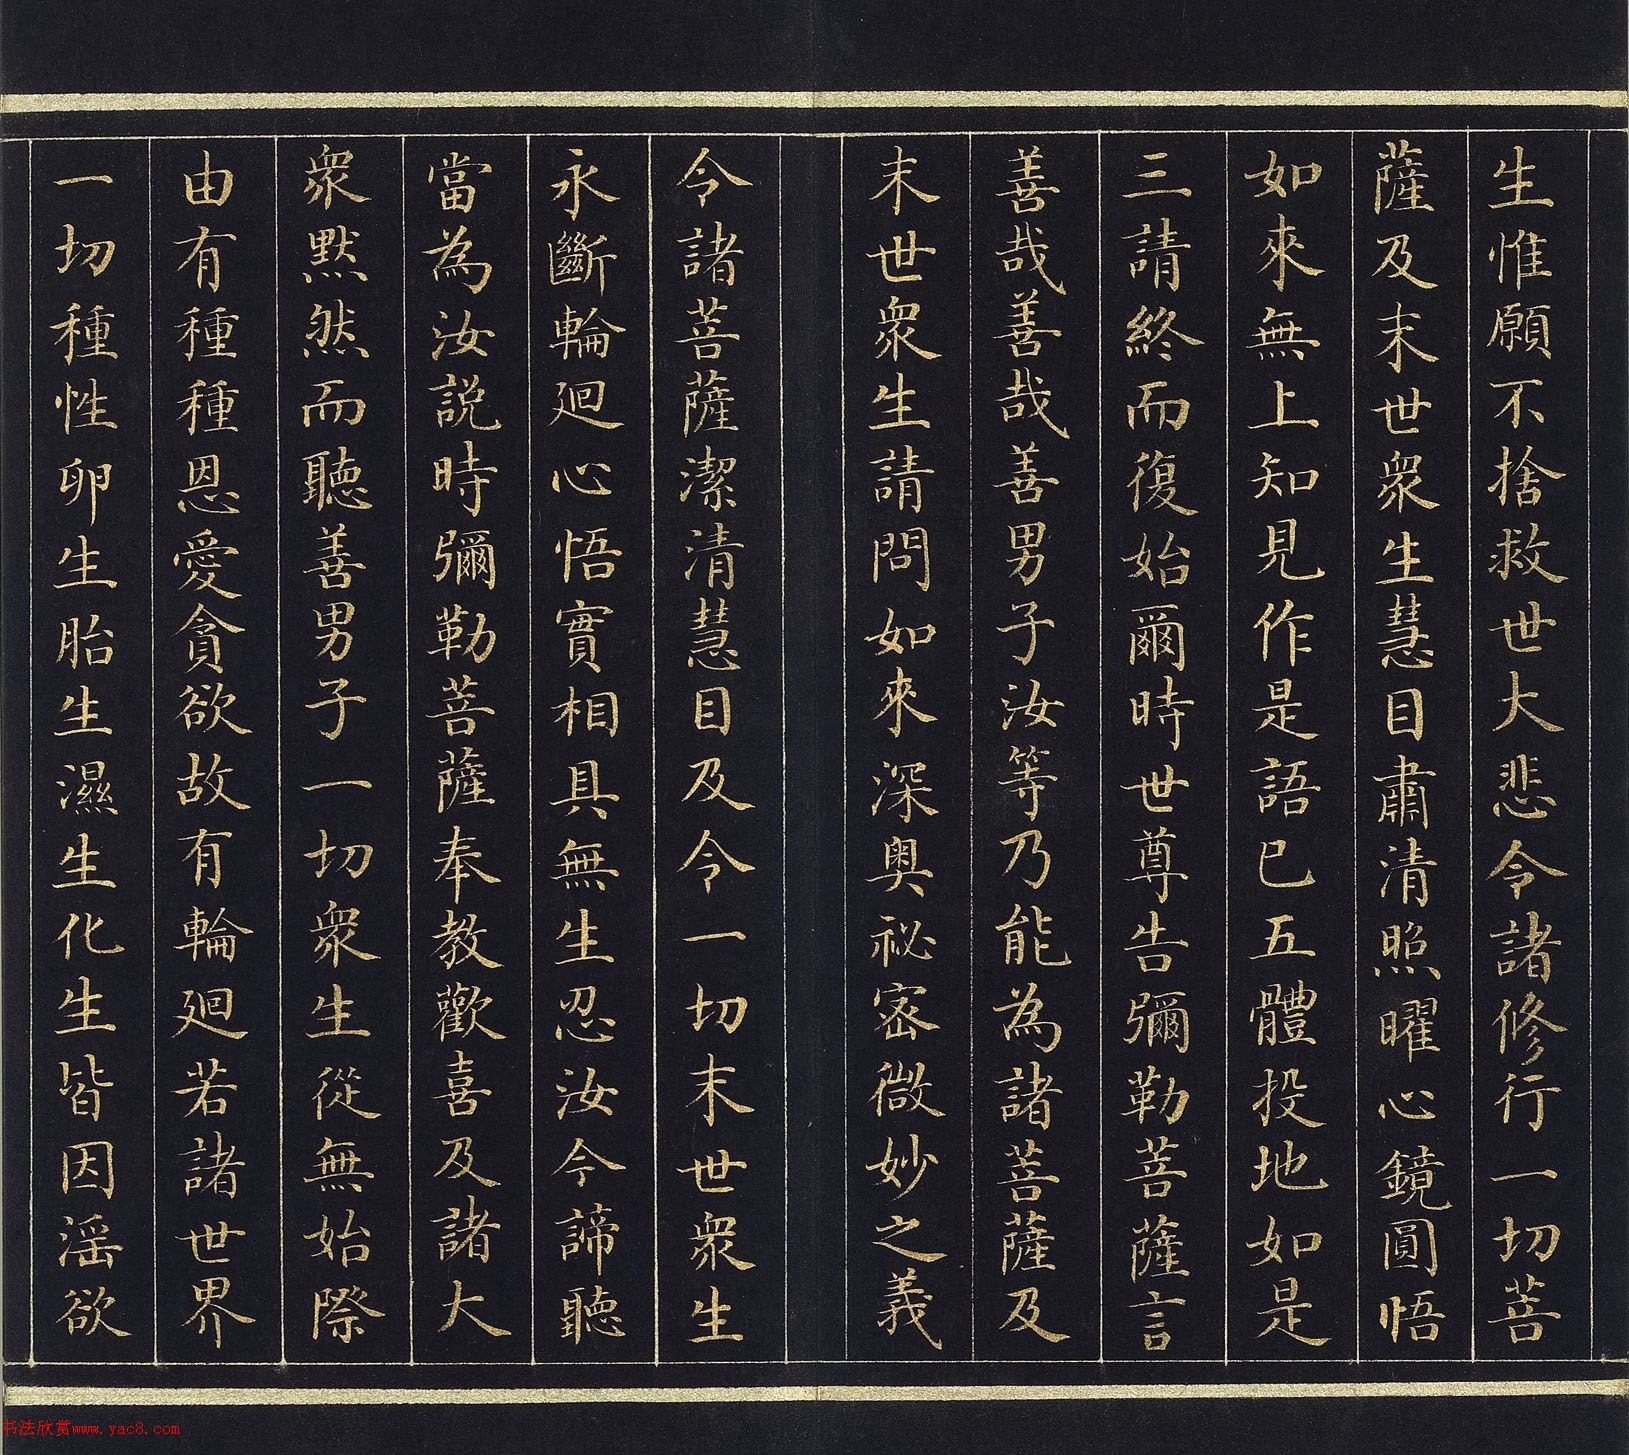 生惟願不捨救世大悲令諸修行一切菩
薩及末世衆生慧目肅清照曜心鏡圓悟
如來無上知見作是語已五體投地如是
三請終而復始爾時世尊告彌勒菩薩言
善哉善哉善男子汝等乃能為諸菩薩及
末世衆生請問如來深奥祕密微妙之義
令諸菩薩潔清慧目及令一切末世衆生
永斷輪廻心悟實相具無生忍汝今諦聽
當為汝説時彌勒菩薩奉教歡喜及諸大
衆默然而聽善男子一切衆生從無始際
由有種種恩愛貪欲故有輪廻若諸世界
一切種性卵生胎生濕生化生皆因淫欲
书法欣赏www.yac8.com